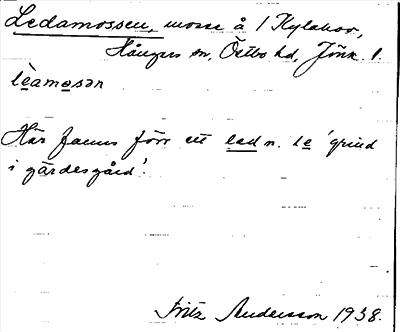 Ledamossen, mosse å 1 Kylahov,
Hångers sn, Östbo hd, Jönk. l.
lèamesən
Här fanns förr ett led n. le 'grind
i gärdesgård'.
Fritz Andersson 1938.